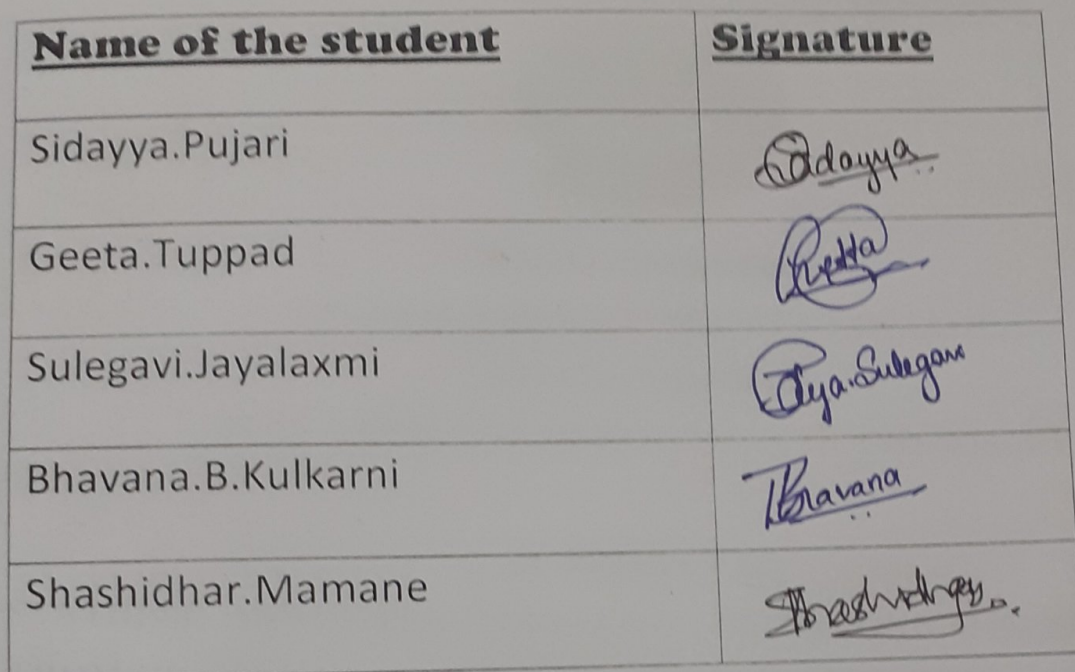 Name of the student Signature
Sidayya.Pujari Sidayya
Geeta.Tuppad Geeta
Sulegavi.Jayalaxmi Jaya.Sulegavi
Bhavana.B.Kulkarni Bhavana
Shashidhar.Mamane Shashidhar